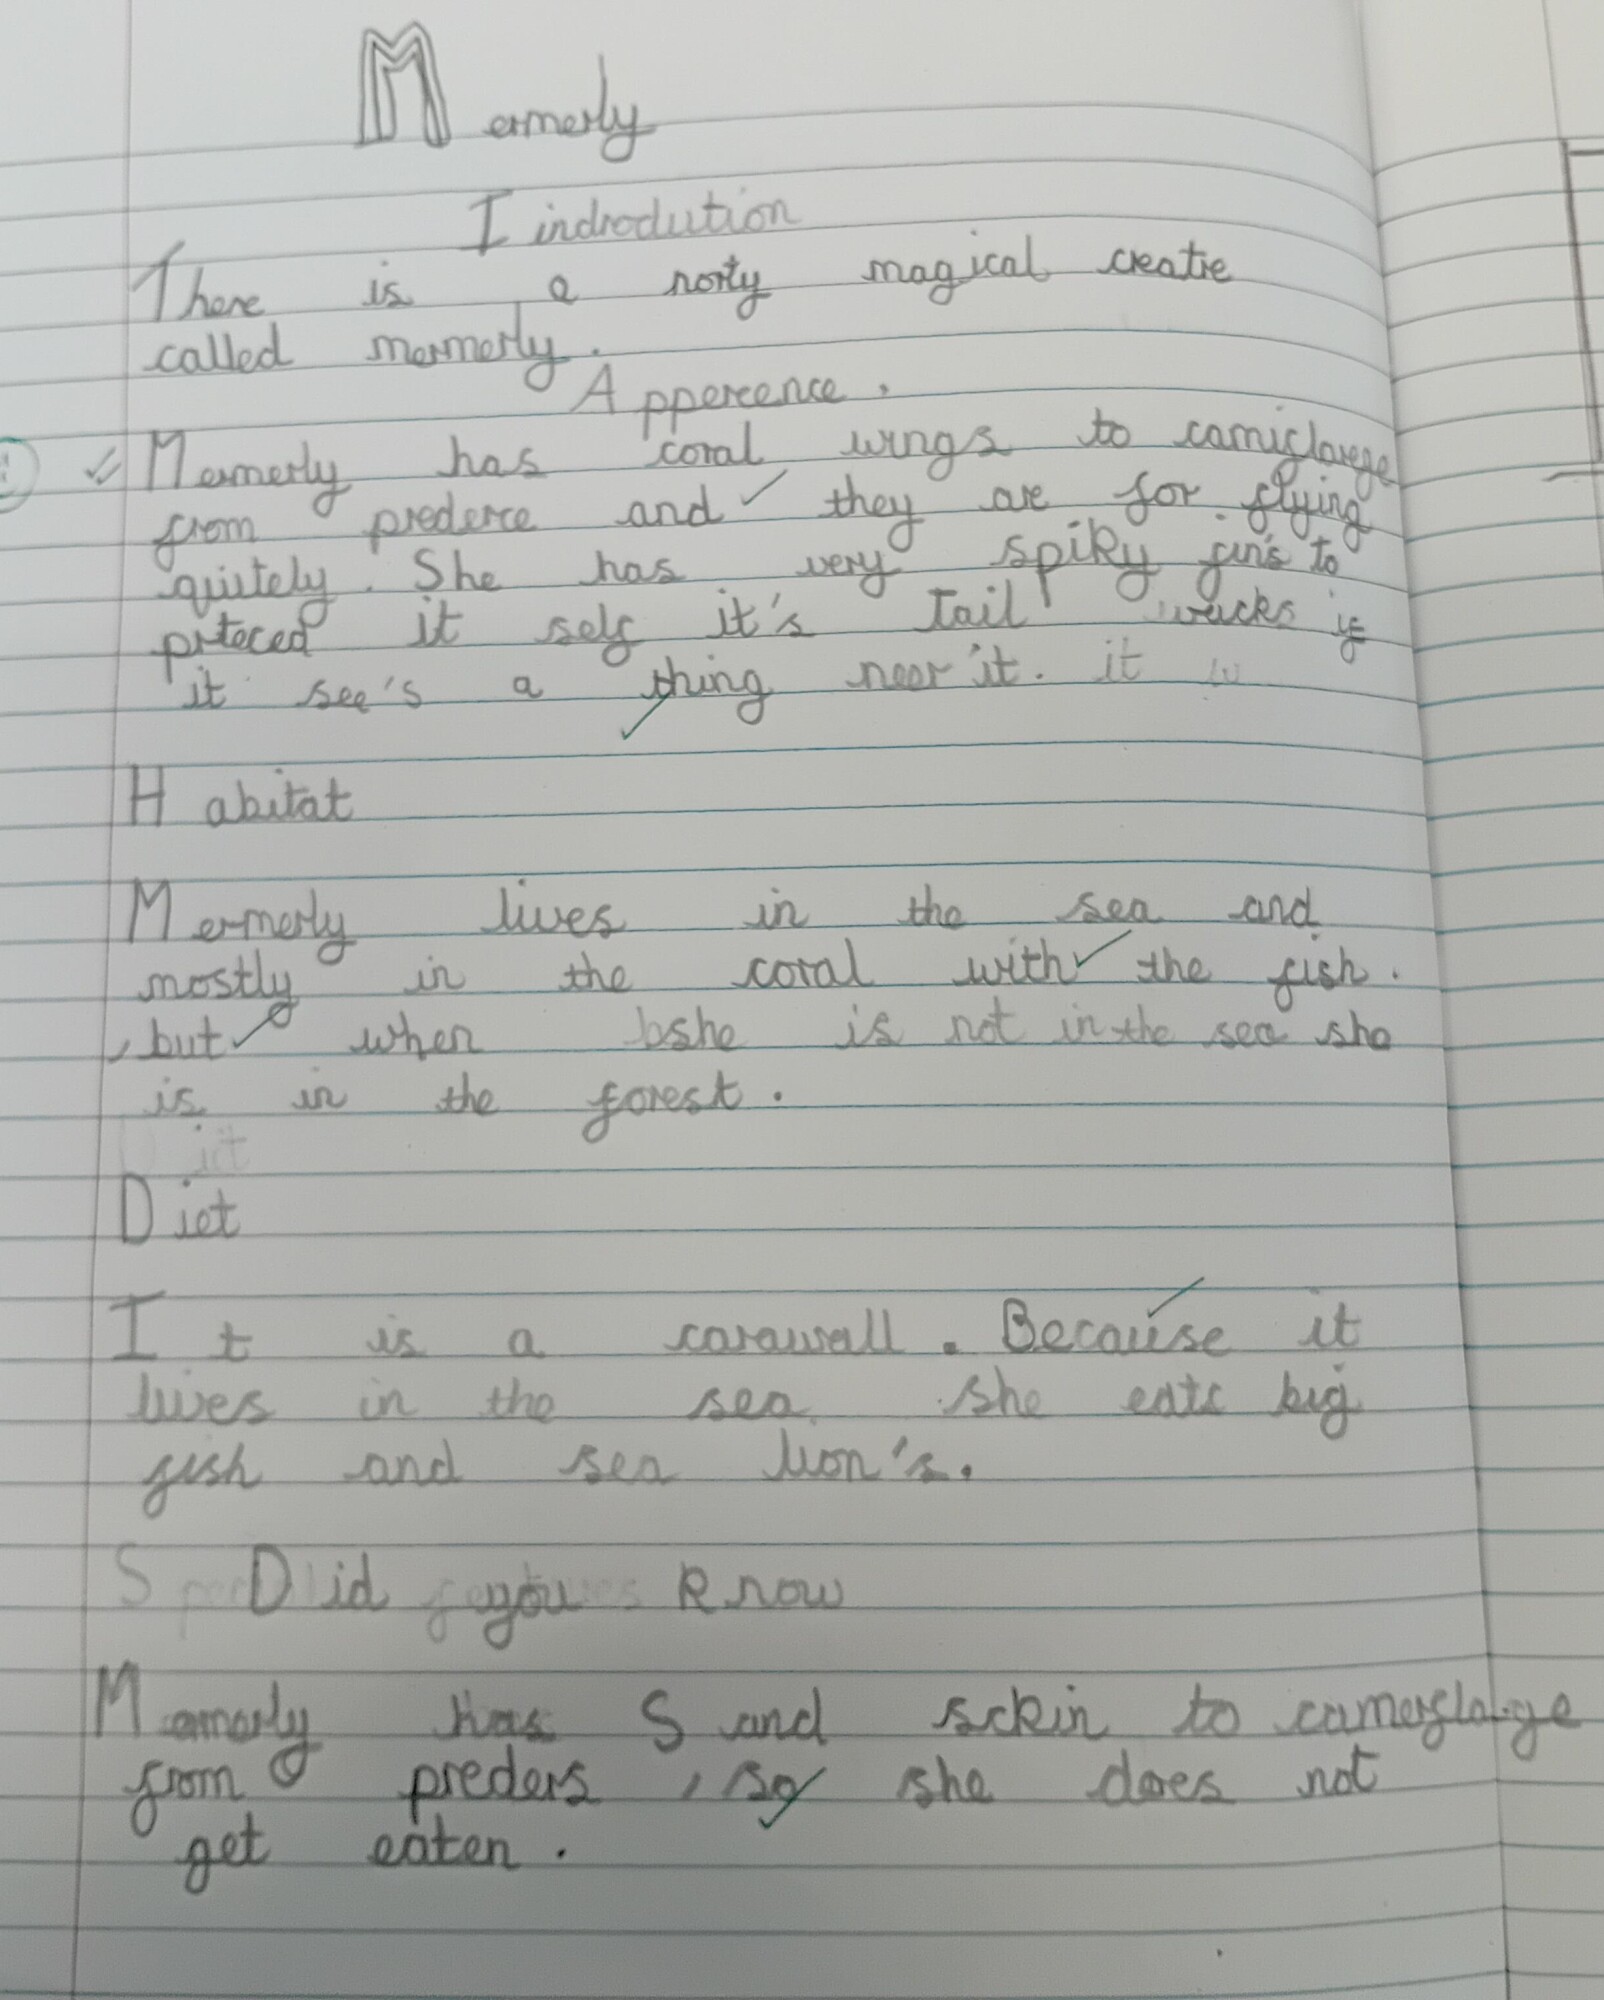 Mermerly
I indrodution
There is a norty magical creatre
called mermerly.
Apperence.
Mermerly has coral wings to camiclarge
from prederce and they are for flying
quitely. She has very spiky fin's to
prteced it self it's tail wucks if
it see's a thing near it. it
Habitat
Mermerly lives in the sea and
mostly in the coral with the fish.
, but when bshe is not in the sea she
is in the forest.
Diet
It is a carawall. Because it
lives in the sea she eats big
fish and sea lion's.
Did you Know
Mermerly has Sand sckin to camerflarge
from preders, so she does not
get eaten.